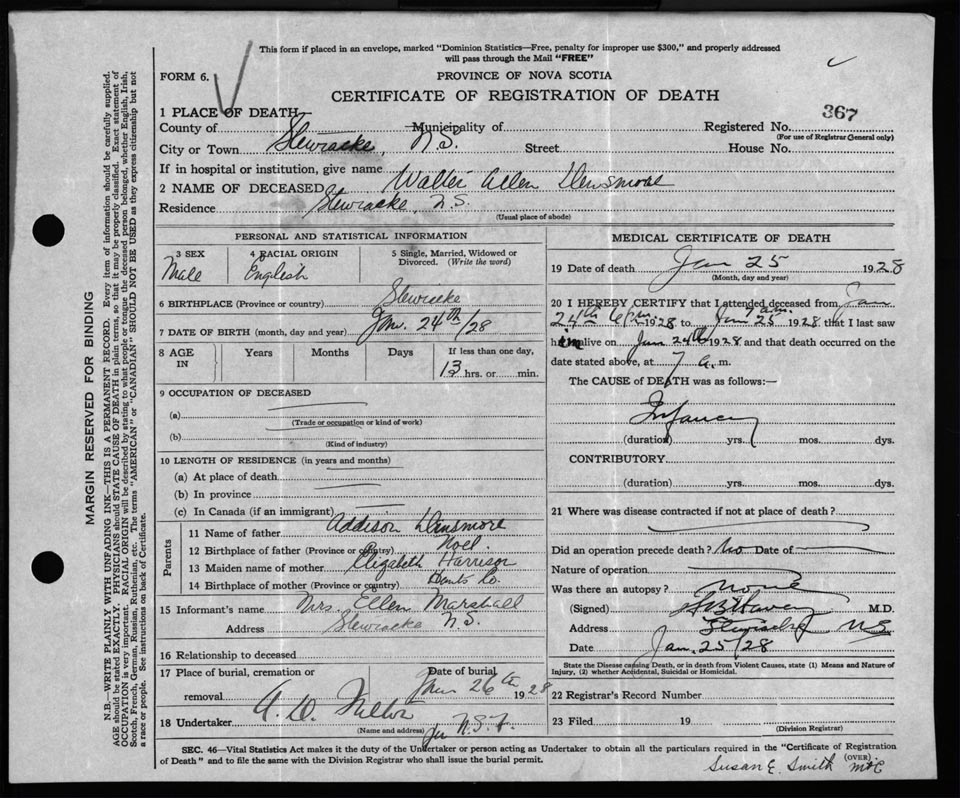 This form if placed in an envelope, marked "Dominion Statistics—Free, penalty for improper use $300," and properly addressed
will pass through the Mail "FREE"
FORM 6.
PROVINCE OF NOVA SCOTIA
CERTIFICATE OF REGISTRATION OF DEATH
367
1 PLACE OF DEATH
County of Municipality of Registered No.
(For use of Registrar General only)
City or Town Stewiacke, N.S. Street House No.
If in hospital or institution, give name
2 NAME OF DECEASED Walter Allen Densmore
Residence Stewiacke, N.S.
(Usual place of abode)
PERSONAL AND STATISTICAL INFORMATION
3 SEX 4 RACIAL ORIGIN 5 Single, Married, Widowed or
Divorced. (Write the word)
Male English
6 BIRTHPLACE (Province or country) Stewiacke
7 DATE OF BIRTH (month, day and year) Jan. 24th/28
8 AGE IN Years Months Days If less than one day,
13 hrs. or min.
9 OCCUPATION OF DECEASED
(a)
(Trade or occupation or kind of work)
(b)
(Kind of industry)
10 LENGTH OF RESIDENCE (in years and months)
(a) At place of death
(b) In province
(c) In Canada (if an immigrant)
Parents
11 Name of father Addison Densmore
12 Birthplace of father (Province or country) Noel.
13 Maiden name of mother Elizabeth Harrison
14 Birthplace of mother (Province or country) Hants Co.
15 Informant's name Mrs. Ellen Marshall
Address Stewiacke N.S.
16 Relationship to deceased
17 Place of burial, cremation or Date of burial
removal Jan 26th 1928
18 Undertaker A. D. Fulton
(Name and address)
MEDICAL CERTIFICATE OF DEATH
19 Date of death Jan 25 1928
(Month, day and year)
20 I HEREBY CERTIFY that I attended deceased from Jan
24th 6 pm. 1928 to Jan 25 7 am. 1928 that I last saw
him alive on Jan 24th 1928 and that death occurred on the
date stated above, at 7 a.m.
The CAUSE of DEATH was as follows:—
Infancy
(duration) yrs. mos. dys.
CONTRIBUTORY
(duration) yrs. mos. dys.
21 Where was disease contracted if not at place of death?
Did an operation precede death? No Date of
Nature of operation
Was there an autopsy? none
(Signed) M.D.
Address Stewiacke NS
Date Jan. 25/28
State the Disease causing Death, or in death from Violent Causes, state (1) Means and Nature of
Injury, (2) whether Accidental, Suicidal or Homicidal.
22 Registrar's Record Number
23 Filed 19
(Division Registrar)
SEC. 46—Vital Statistics Act makes it the duty of the Undertaker or person acting as Undertaker to obtain all the particulars required in the "Certificate of Registration
of Death" and to file the same with the Division Registrar who shall issue the burial permit.
(OVER)
Susan E. Smith
MARGIN RESERVED FOR BINDING
N.B.—WRITE PLAINLY WITH UNFADING INK—THIS IS A PERMANENT RECORD. Every item of information should be carefully supplied.
AGE should be stated EXACTLY. PHYSICIANS should STATE CAUSE OF DEATH in plain terms, so that it may be properly classified. Exact statement of
OCCUPATION is very important. RACIAL ORIGIN will be described by stating to what people or tongue the deceased person belonged, whether English, Irish,
Scotch, French, German, Russian, Ruthenian, etc. The terms "AMERICAN" or "CANADIAN" SHOULD NOT BE USED as they express citizenship but not
a race or people. See instructions on back of Certificate.